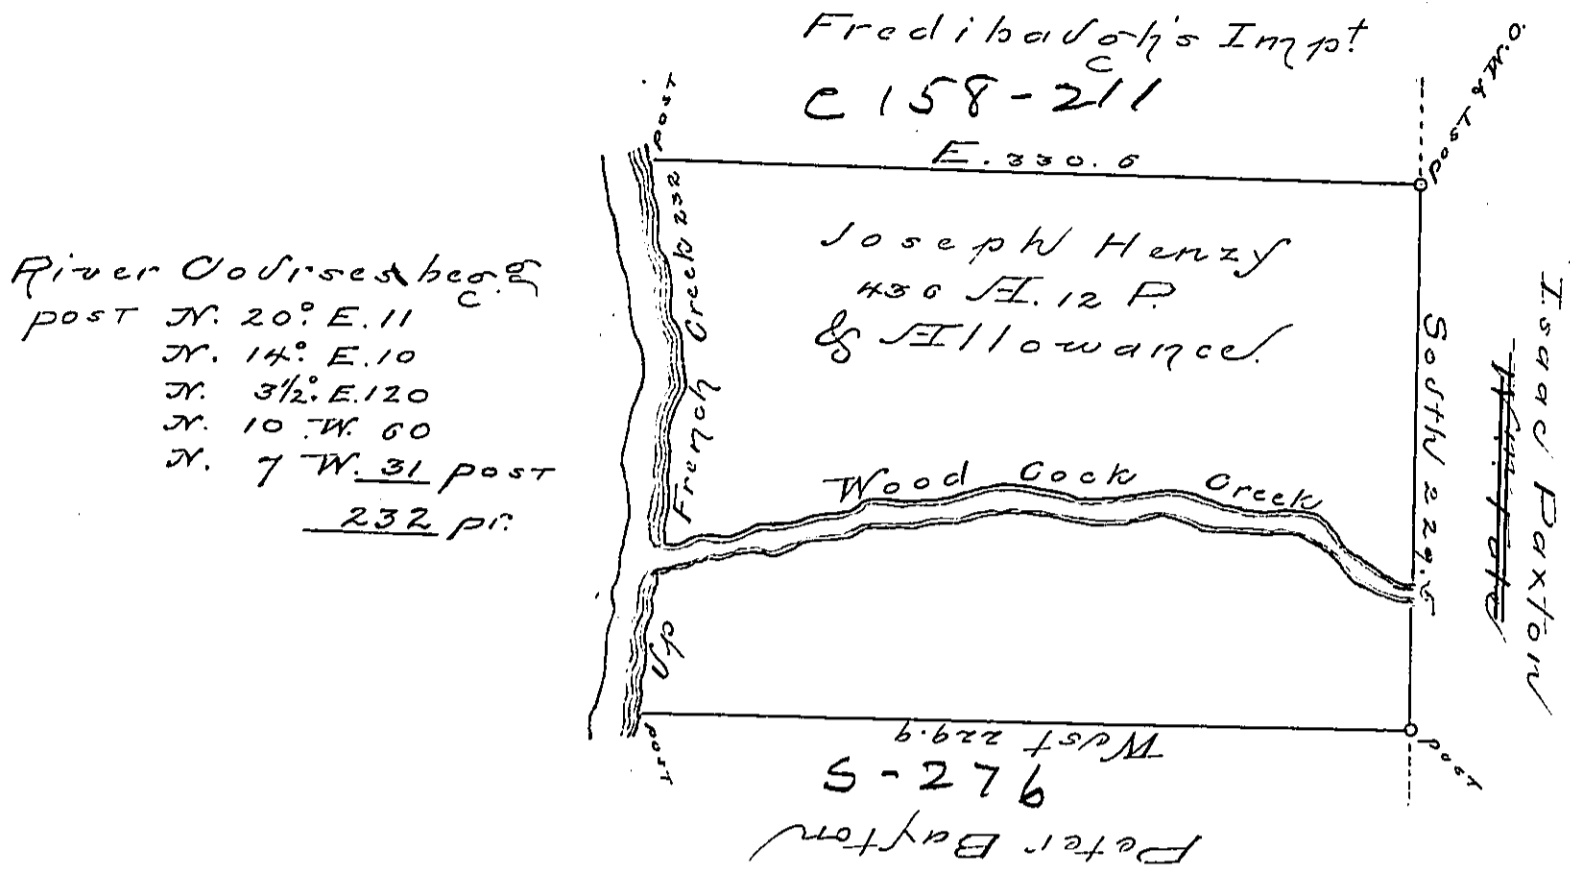 Fredibaugh's Impt
C 158-211
post
E. 330.6
post & W.O.
River Courses beg.g
post N. 20° E. 11
N. 14° E. 10
N. 3½° E. 120
N. 10 W. 60
N. 7 W. 31 post
232 pr.
Up French Creek 232
Joseph Henry
436 A. 12 P
& Allowance.
Wood Cock Creek
South 229.5
Isaac Paxton
post
West 229.9
post
S-276
Peter Baynton